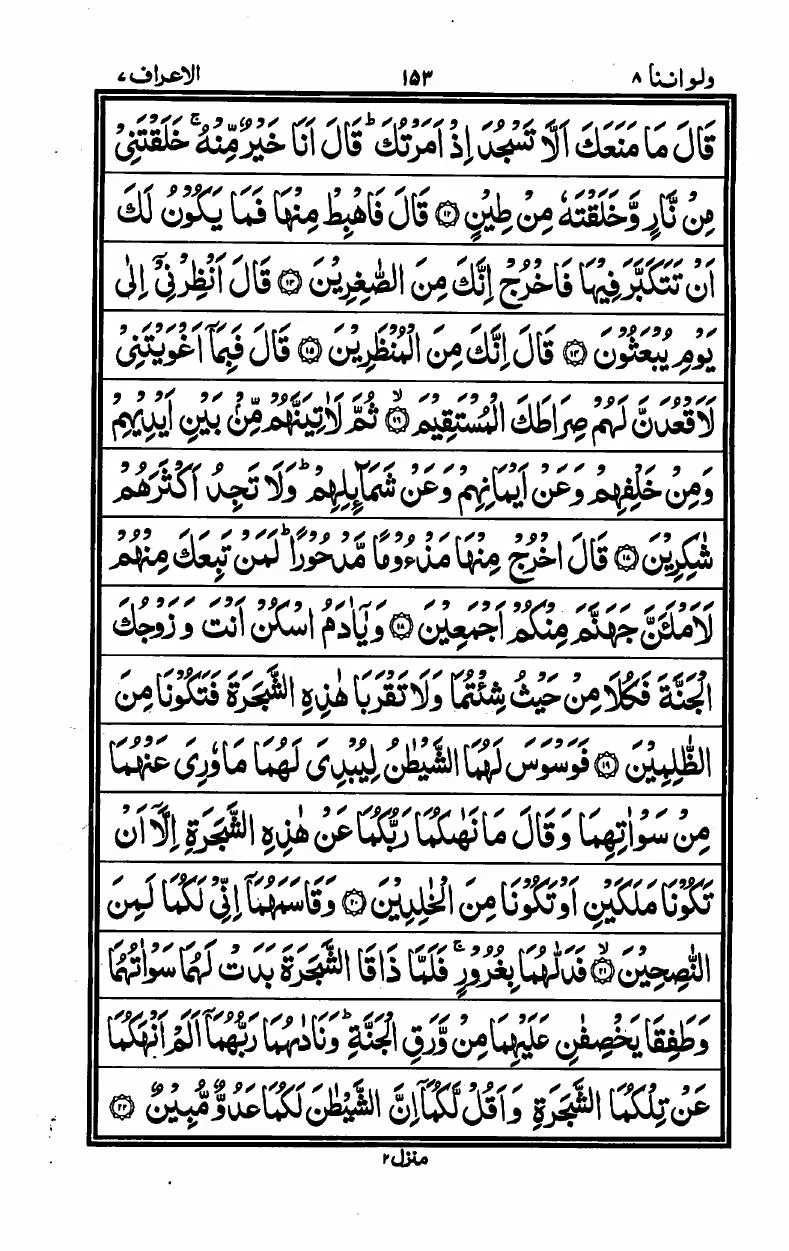 ولو اننا ٨ ١٥٣ الاعراف ٧
قَالَ مَا مَنَعَكَ اَلَّا تَسْجُدَ اِذْ اَمَرْتُكَ ؕ قَالَ اَنَا خَيْرٌ مِّنْهُ ۚ خَلَقْتَنِيْ
مِنْ نَّارٍ وَّخَلَقْتَهٗ مِنْ طِيْنٍ ۝١٢ قَالَ فَاهْبِطْ مِنْهَا فَمَا يَكُوْنُ لَكَ
اَنْ تَتَكَبَّرَ فِيْهَا فَاخْرُجْ اِنَّكَ مِنَ الصّٰغِرِيْنَ ۝١٣ قَالَ اَنْظِرْنِيْٓ اِلٰى
يَوْمِ يُبْعَثُوْنَ ۝١٤ قَالَ اِنَّكَ مِنَ الْمُنْظَرِيْنَ ۝١٥ قَالَ فَبِمَآ اَغْوَيْتَنِيْ
لَاَقْعُدَنَّ لَهُمْ صِرَاطَكَ الْمُسْتَقِيْمَ ۙ۝١٦ ثُمَّ لَاٰتِيَنَّهُمْ مِّنْۢ بَيْنِ اَيْدِيْهِمْ
وَمِنْ خَلْفِهِمْ وَعَنْ اَيْمَانِهِمْ وَعَنْ شَمَآئِلِهِمْ ؕ وَلَا تَجِدُ اَكْثَرَهُمْ
شٰكِرِيْنَ ۝١٧ قَالَ اخْرُجْ مِنْهَا مَذْءُوْمًا مَّدْحُوْرًا ؕ لَمَنْ تَبِعَكَ مِنْهُمْ
لَاَمْلَئَنَّ جَهَنَّمَ مِنْكُمْ اَجْمَعِيْنَ ۝١٨ وَيٰٓاٰدَمُ اسْكُنْ اَنْتَ وَزَوْجُكَ
الْجَنَّةَ فَكُلَا مِنْ حَيْثُ شِئْتُمَا وَلَا تَقْرَبَا هٰذِهِ الشَّجَرَةَ فَتَكُوْنَا مِنَ
الظّٰلِمِيْنَ ۝١٩ فَوَسْوَسَ لَهُمَا الشَّيْطٰنُ لِيُبْدِيَ لَهُمَا مَا وٗرِيَ عَنْهُمَا
مِنْ سَوْاٰتِهِمَا وَقَالَ مَا نَهٰىكُمَا رَبُّكُمَا عَنْ هٰذِهِ الشَّجَرَةِ اِلَّآ اَنْ
تَكُوْنَا مَلَكَيْنِ اَوْ تَكُوْنَا مِنَ الْخٰلِدِيْنَ ۝٢٠ وَقَاسَمَهُمَآ اِنِّيْ لَكُمَا لَمِنَ
النّٰصِحِيْنَ ۙ۝٢١ فَدَلّٰىهُمَا بِغُرُوْرٍ ۚ فَلَمَّا ذَاقَا الشَّجَرَةَ بَدَتْ لَهُمَا سَوْاٰتُهُمَا
وَطَفِقَا يَخْصِفٰنِ عَلَيْهِمَا مِنْ وَّرَقِ الْجَنَّةِ ؕ وَنَادٰىهُمَا رَبُّهُمَآ اَلَمْ اَنْهَكُمَا
عَنْ تِلْكُمَا الشَّجَرَةِ وَاَقُلْ لَّكُمَآ اِنَّ الشَّيْطٰنَ لَكُمَا عَدُوٌّ مُّبِيْنٌ ۝٢٢
منزل ٢